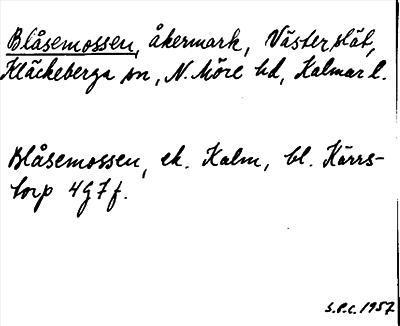 Blåsemossen, åkermark, Västerslät,
Kläckeberga sn, N. Möre hd, Kalmar l.
Blåsemossen, ek. Kalm, bl. Kärrs-
torp 4g7f.
S.P.C. 1957